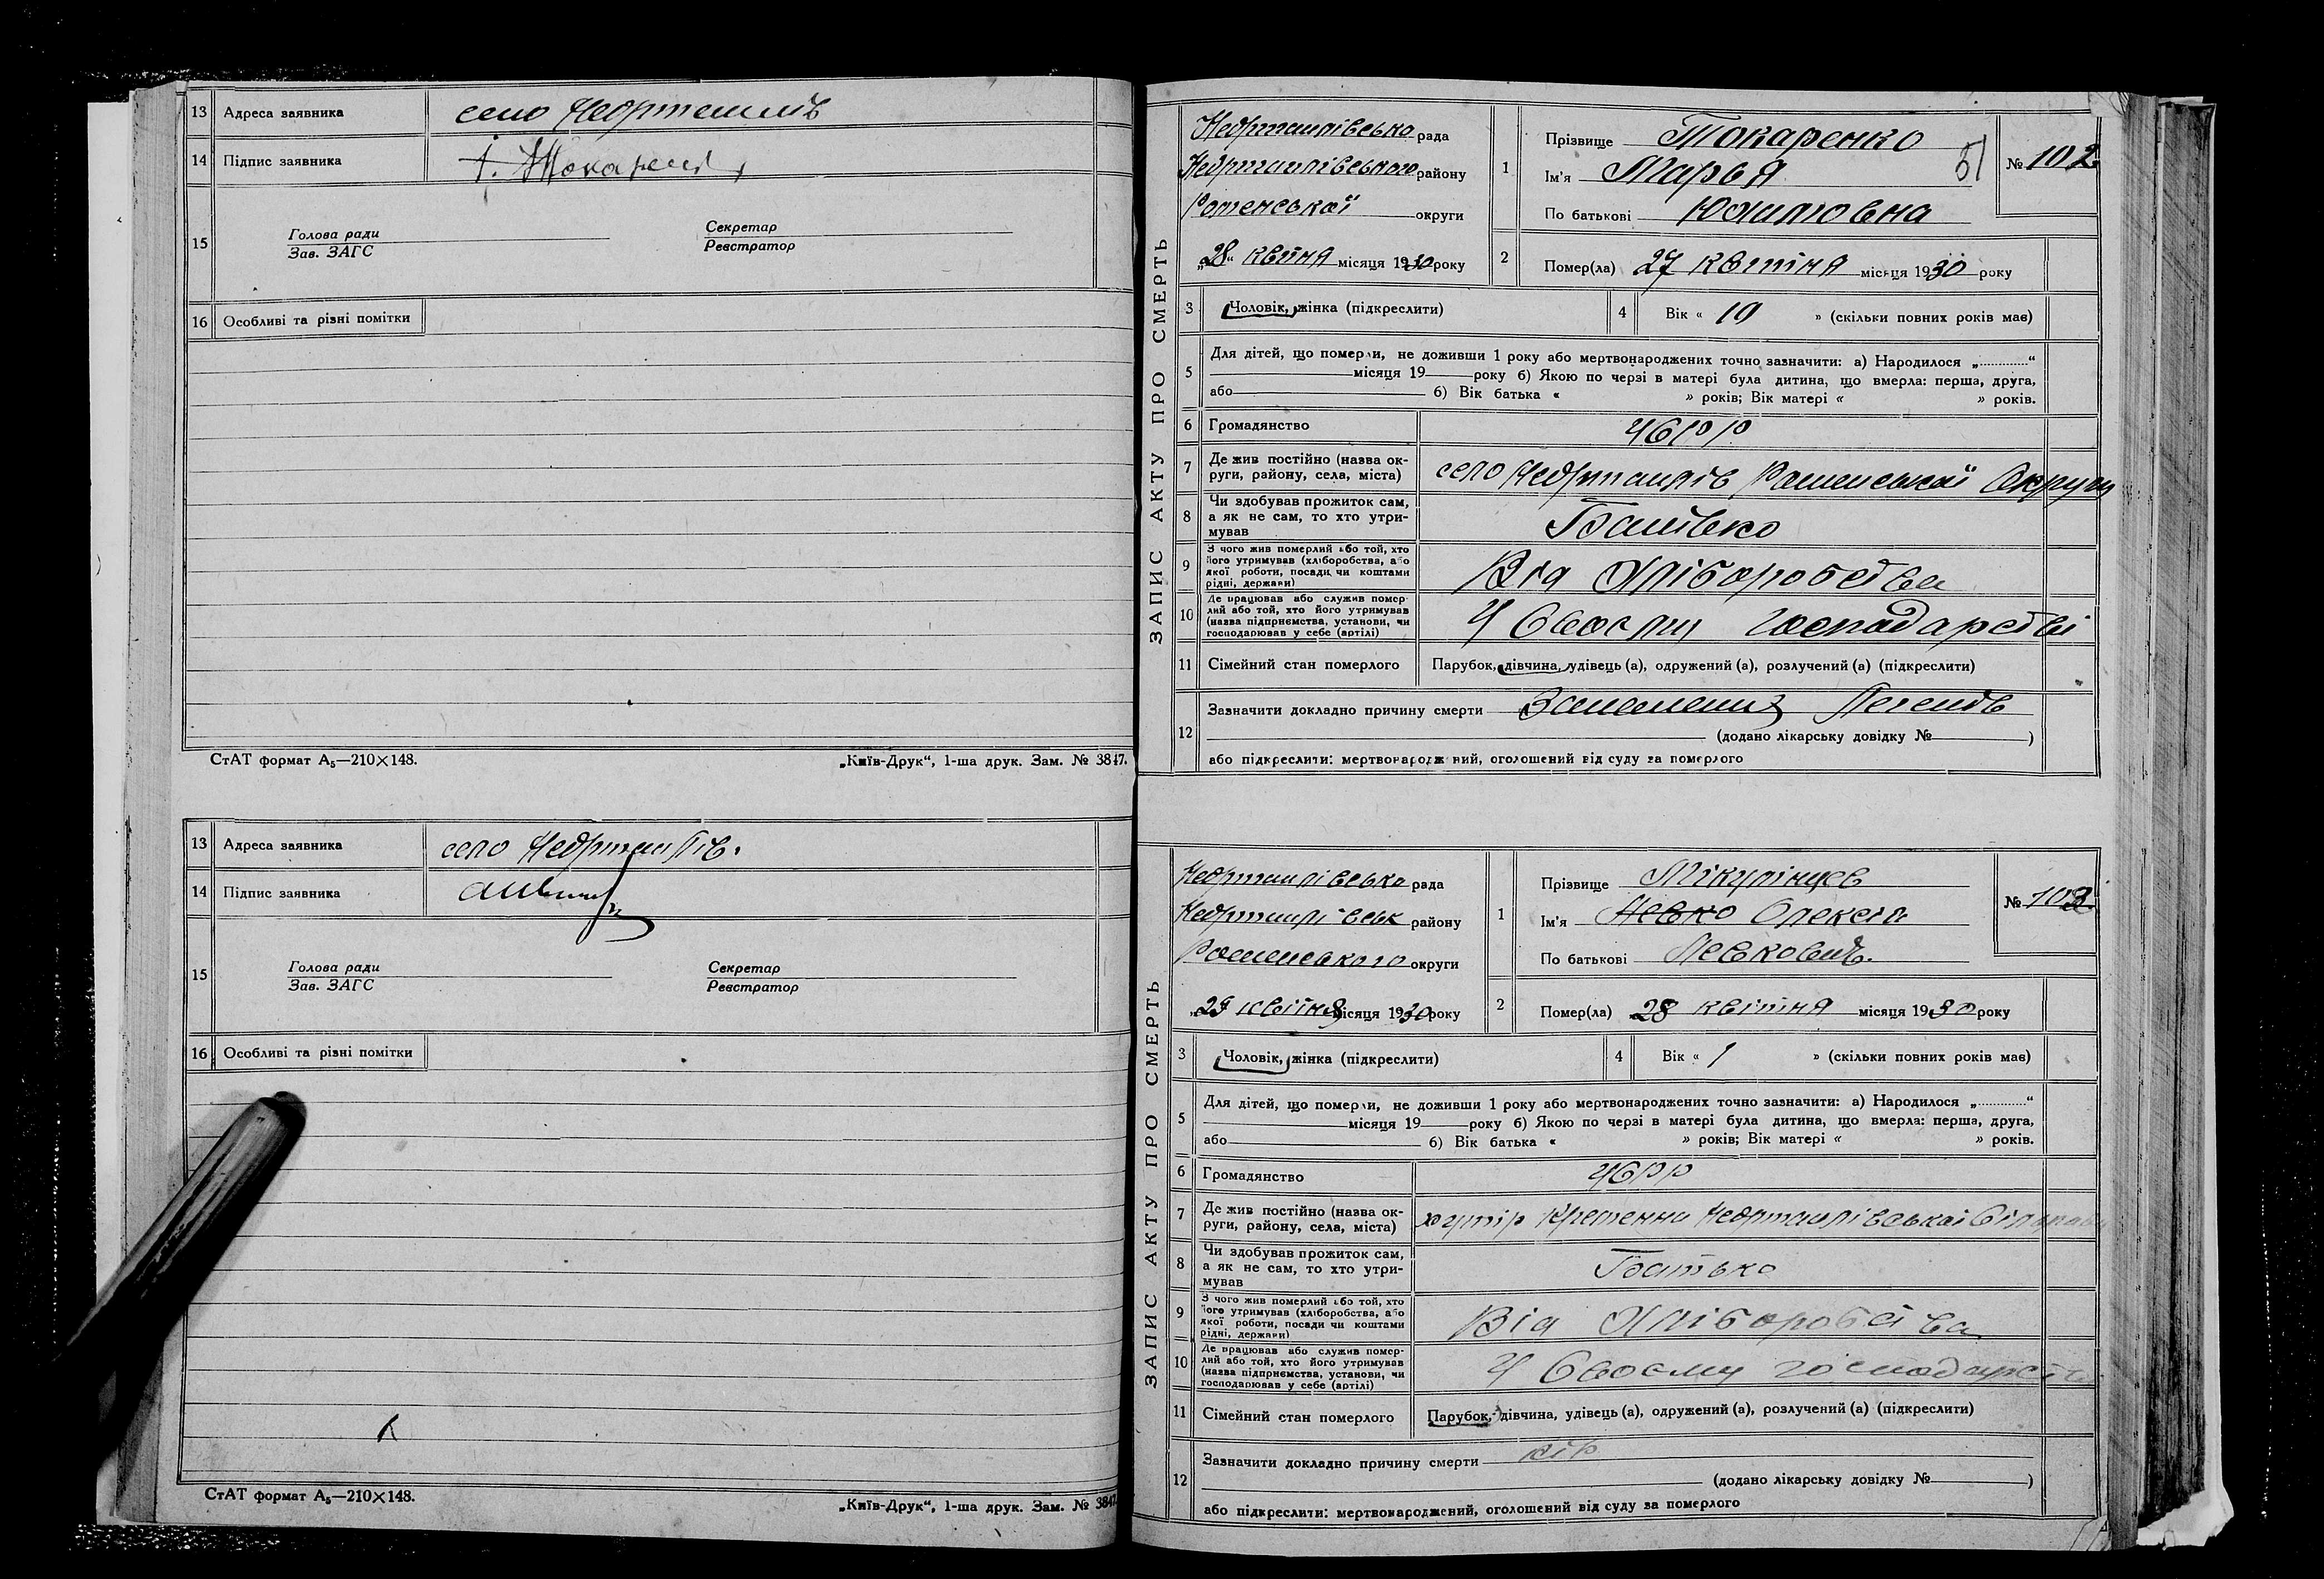 13 Адреса заявника село
14 Підпис заявника
15 Голова ради Секретар
Зав. ЗАГС Реєстратор
16 Особливі та різні помітки
СтАТ формат А₅—210×148. „Київ-Друк“, 1-ша друк. Зам. № 3847.
13 Адреса заявника село
14 Підпис заявника
15 Голова ради Секретар
Зав. ЗАГС Реєстратор
16 Особливі та різні помітки
СтАТ формат А₅—210×148. „Київ-Друк“, 1-ша друк. Зам. № 3847.
ЗАПИС АКТУ ПРО СМЕРТЬ
51
№ 102
рада
району
Роменської округи
„28“ квітня місяця 1930 року
1 Прізвище Токаренко
Ім'я Марья
По батькові
2 Помер(ла) 27 квітня місяця 1930 року
3 Чоловік, жінка (підкреслити)
4 Вік « 10 » (скільки повних років має)
5 Для дітей, що померли, не доживши 1 року або мертвонароджених точно зазначити: а) Народилося „............“
місяця 19 року б) Якою по черзі в матері була дитина, що вмерла: перша, друга,
або б) Вік батька « » років; Вік матері « » років.
6 Громадянство УСРР
7 Де жив постійно (назва ок-
руги, району, села, міста) село Роменської Округи
8 Чи здобував прожиток сам,
а як не сам, то хто утри-
мував Батько
9 З чого жив померлий або той, хто
його утримував (хліборобства, або
якої роботи, посади чи коштами
рідні, держави) Від Хліборобства
10 Де працював або служив помер-
лий або той, хто його утримував
(назва підприємства, установи, чи
господарював у себе (артілі) У Своєму господарстві
11 Сімейний стан померлого Парубок, дівчина, удівець (а), одружений (а), розлучений (а) (підкреслити)
12 Зазначити докладно причину смерти Запалення Легенів
(додано лікарську довідку № )
або підкреслити: мертвонароджений, оголошений від суду за померлого
ЗАПИС АКТУ ПРО СМЕРТЬ
№ 103
рада
району
Роменського округи
„29 квітня місяця 1930 року
1 Прізвище Мікулінцев
Ім'я Левко Олексій
По батькові Левкович.
2 Помер(ла) 28 квітня місяця 1930 року
3 Чоловік, жінка (підкреслити)
4 Вік « 1 » (скільки повних років має)
5 Для дітей, що померли, не доживши 1 року або мертвонароджених точно зазначити: а) Народилося „............“
місяця 19 року б) Якою по черзі в матері була дитина, що вмерла: перша, друга,
або б) Вік батька « » років; Вік матері « » років.
6 Громадянство УСРР
7 Де жив постійно (назва ок-
руги, району, села, міста) хутір
8 Чи здобував прожиток сам,
а як не сам, то хто утри-
мував Батько
9 З чого жив померлий або той, хто
його утримував (хліборобства, або
якої роботи, посади чи коштами
рідні, держави) Від Хліборобства
10 Де працював або служив помер-
лий або той, хто його утримував
(назва підприємства, установи, чи
господарював у себе (артілі) У Своєму господарстві
11 Сімейний стан померлого Парубок, дівчина, удівець (а), одружений (а), розлучений (а) (підкреслити)
12 Зазначити докладно причину смерти кір
(додано лікарську довідку № )
або підкреслити: мертвонароджений, оголошений від суду за померлого